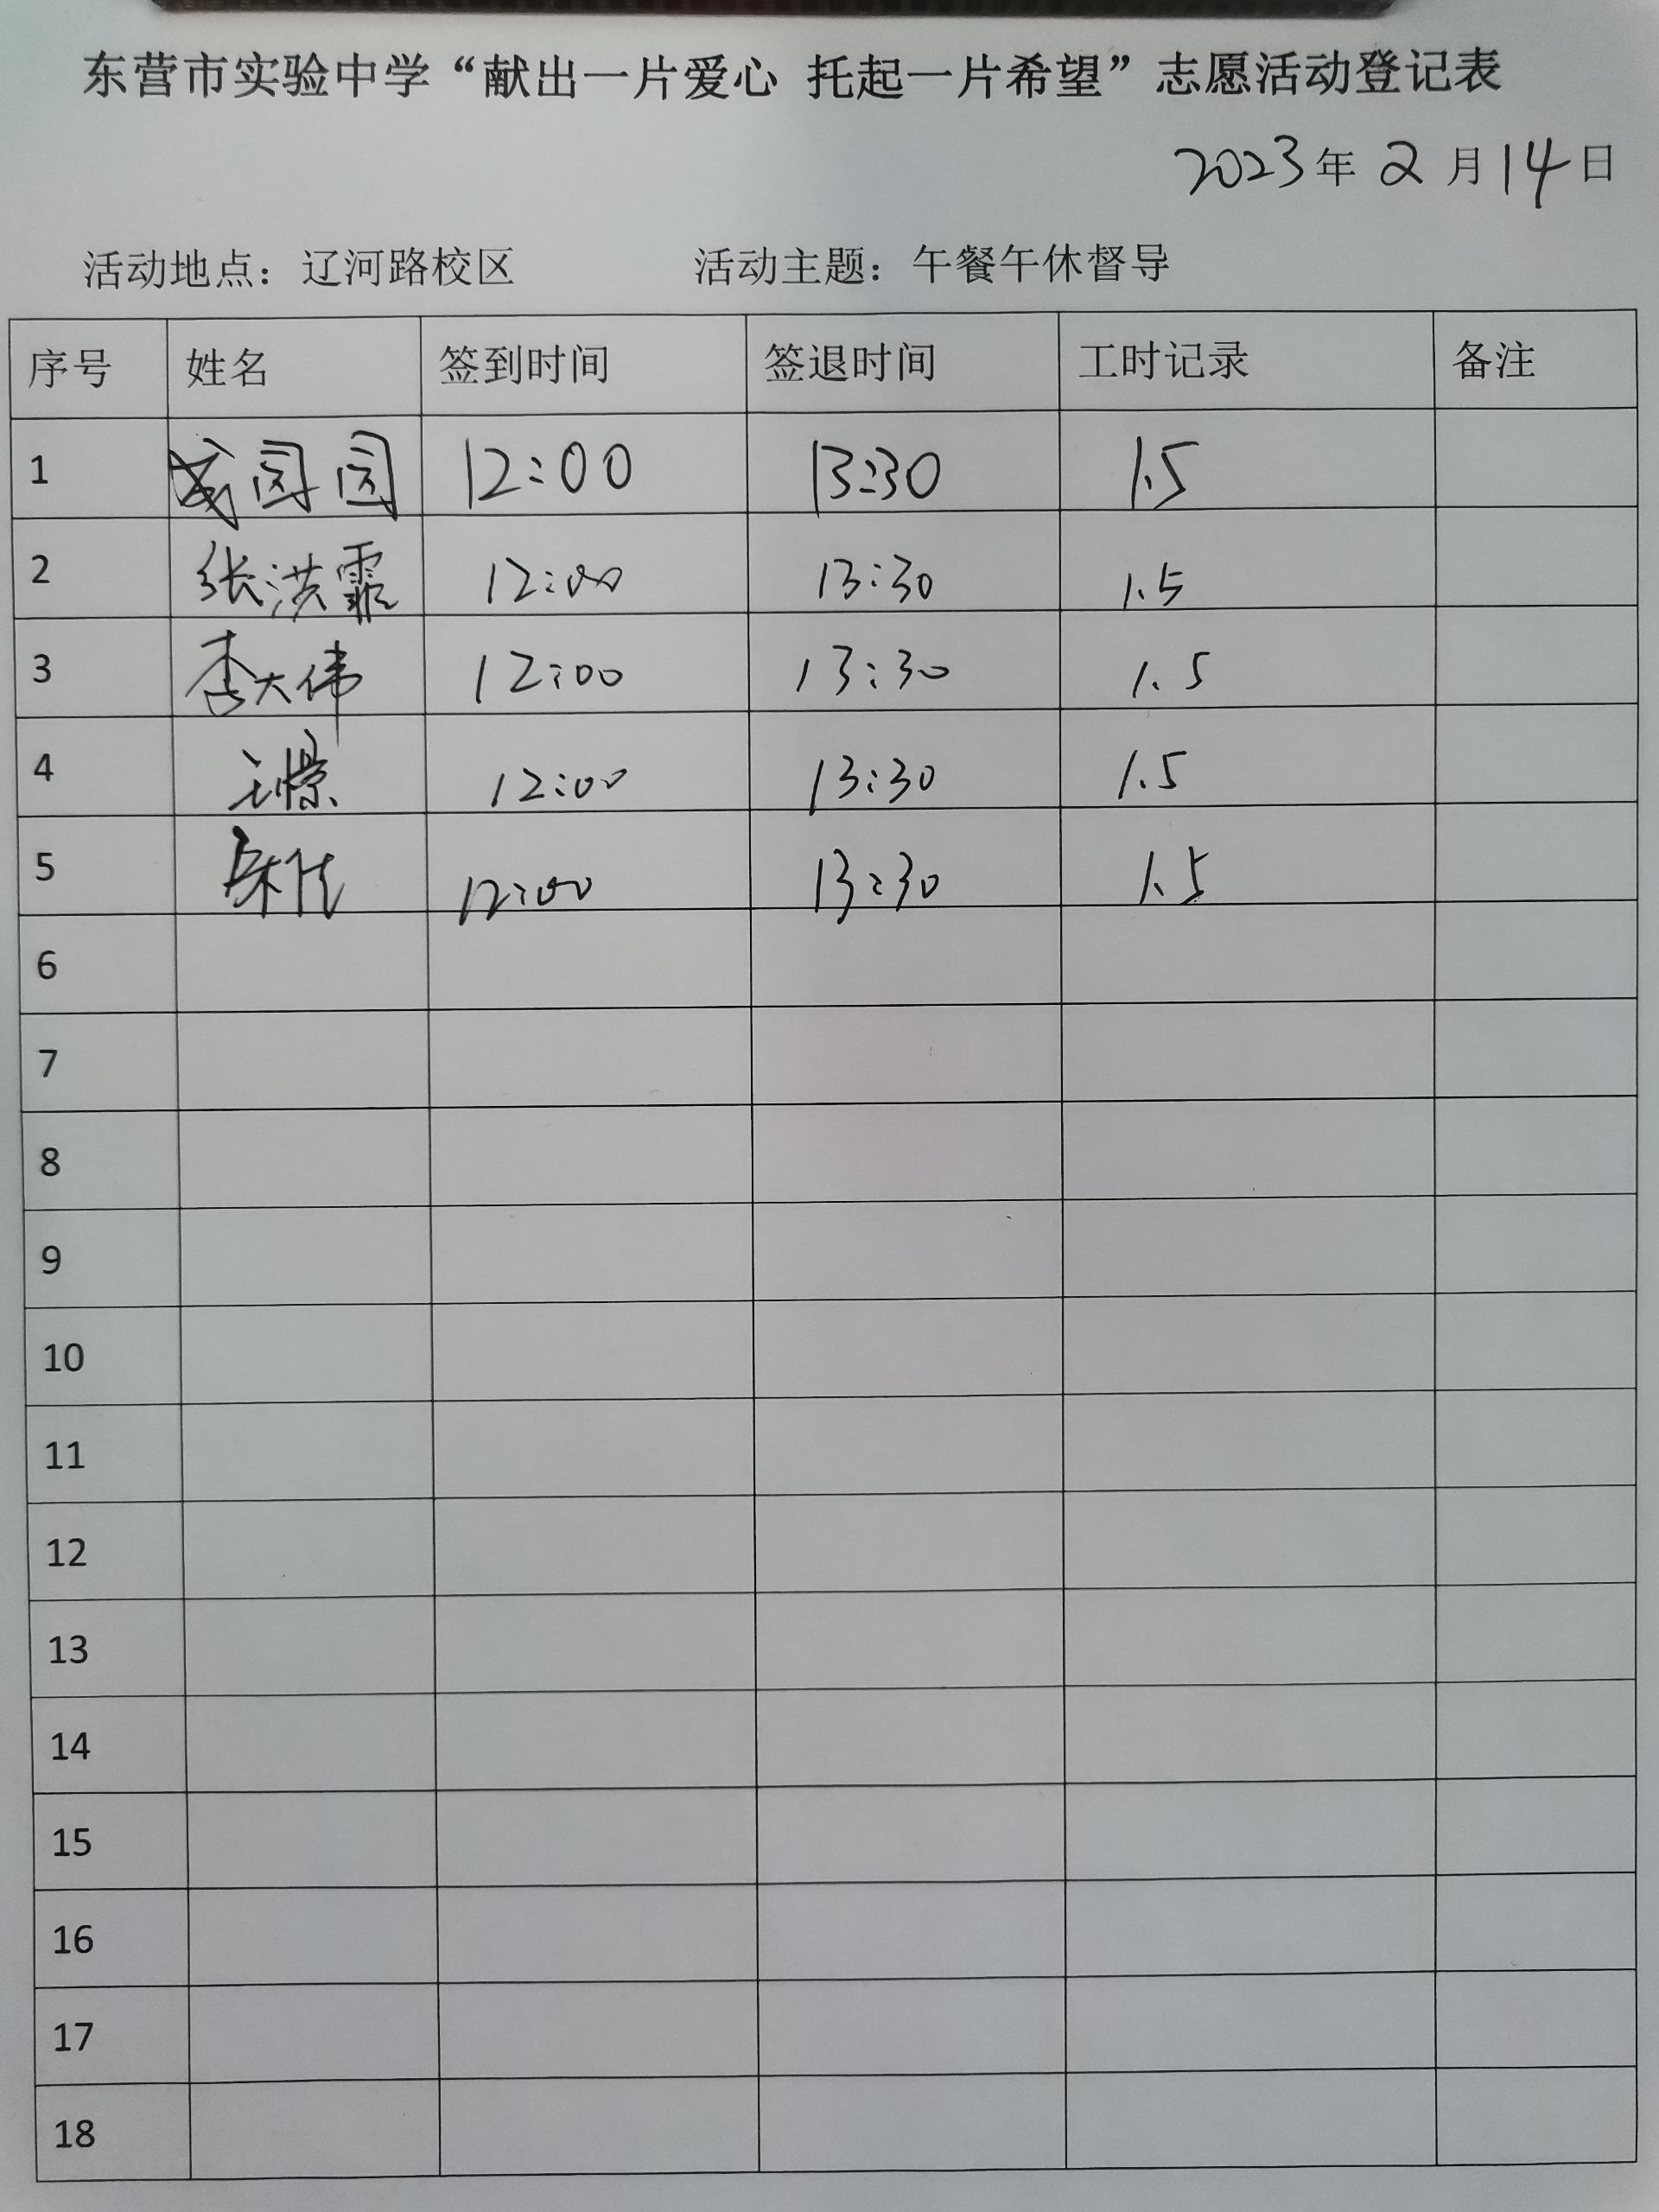 东营市实验中学“献出一片爱心 托起一片希望”志愿活动登记表
2023年2月14日
活动地点：辽河路校区 活动主题：午餐午休督导
序号 姓名 签到时间 签退时间 工时记录 备注
1 园园 12:00 13:30 1.5
2 张洪霏 12:00 13:30 1.5
3 李大伟 12:00 13:30 1.5
4 王憬 12:00 13:30 1.5
5 12:00 13:30 1.5
6
7
8
9
10
11
12
13
14
15
16
17
18